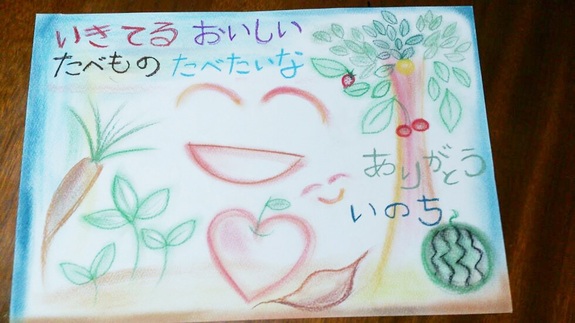 いきてる おいしい
たべもの たべたいな
ありがとう
いのち